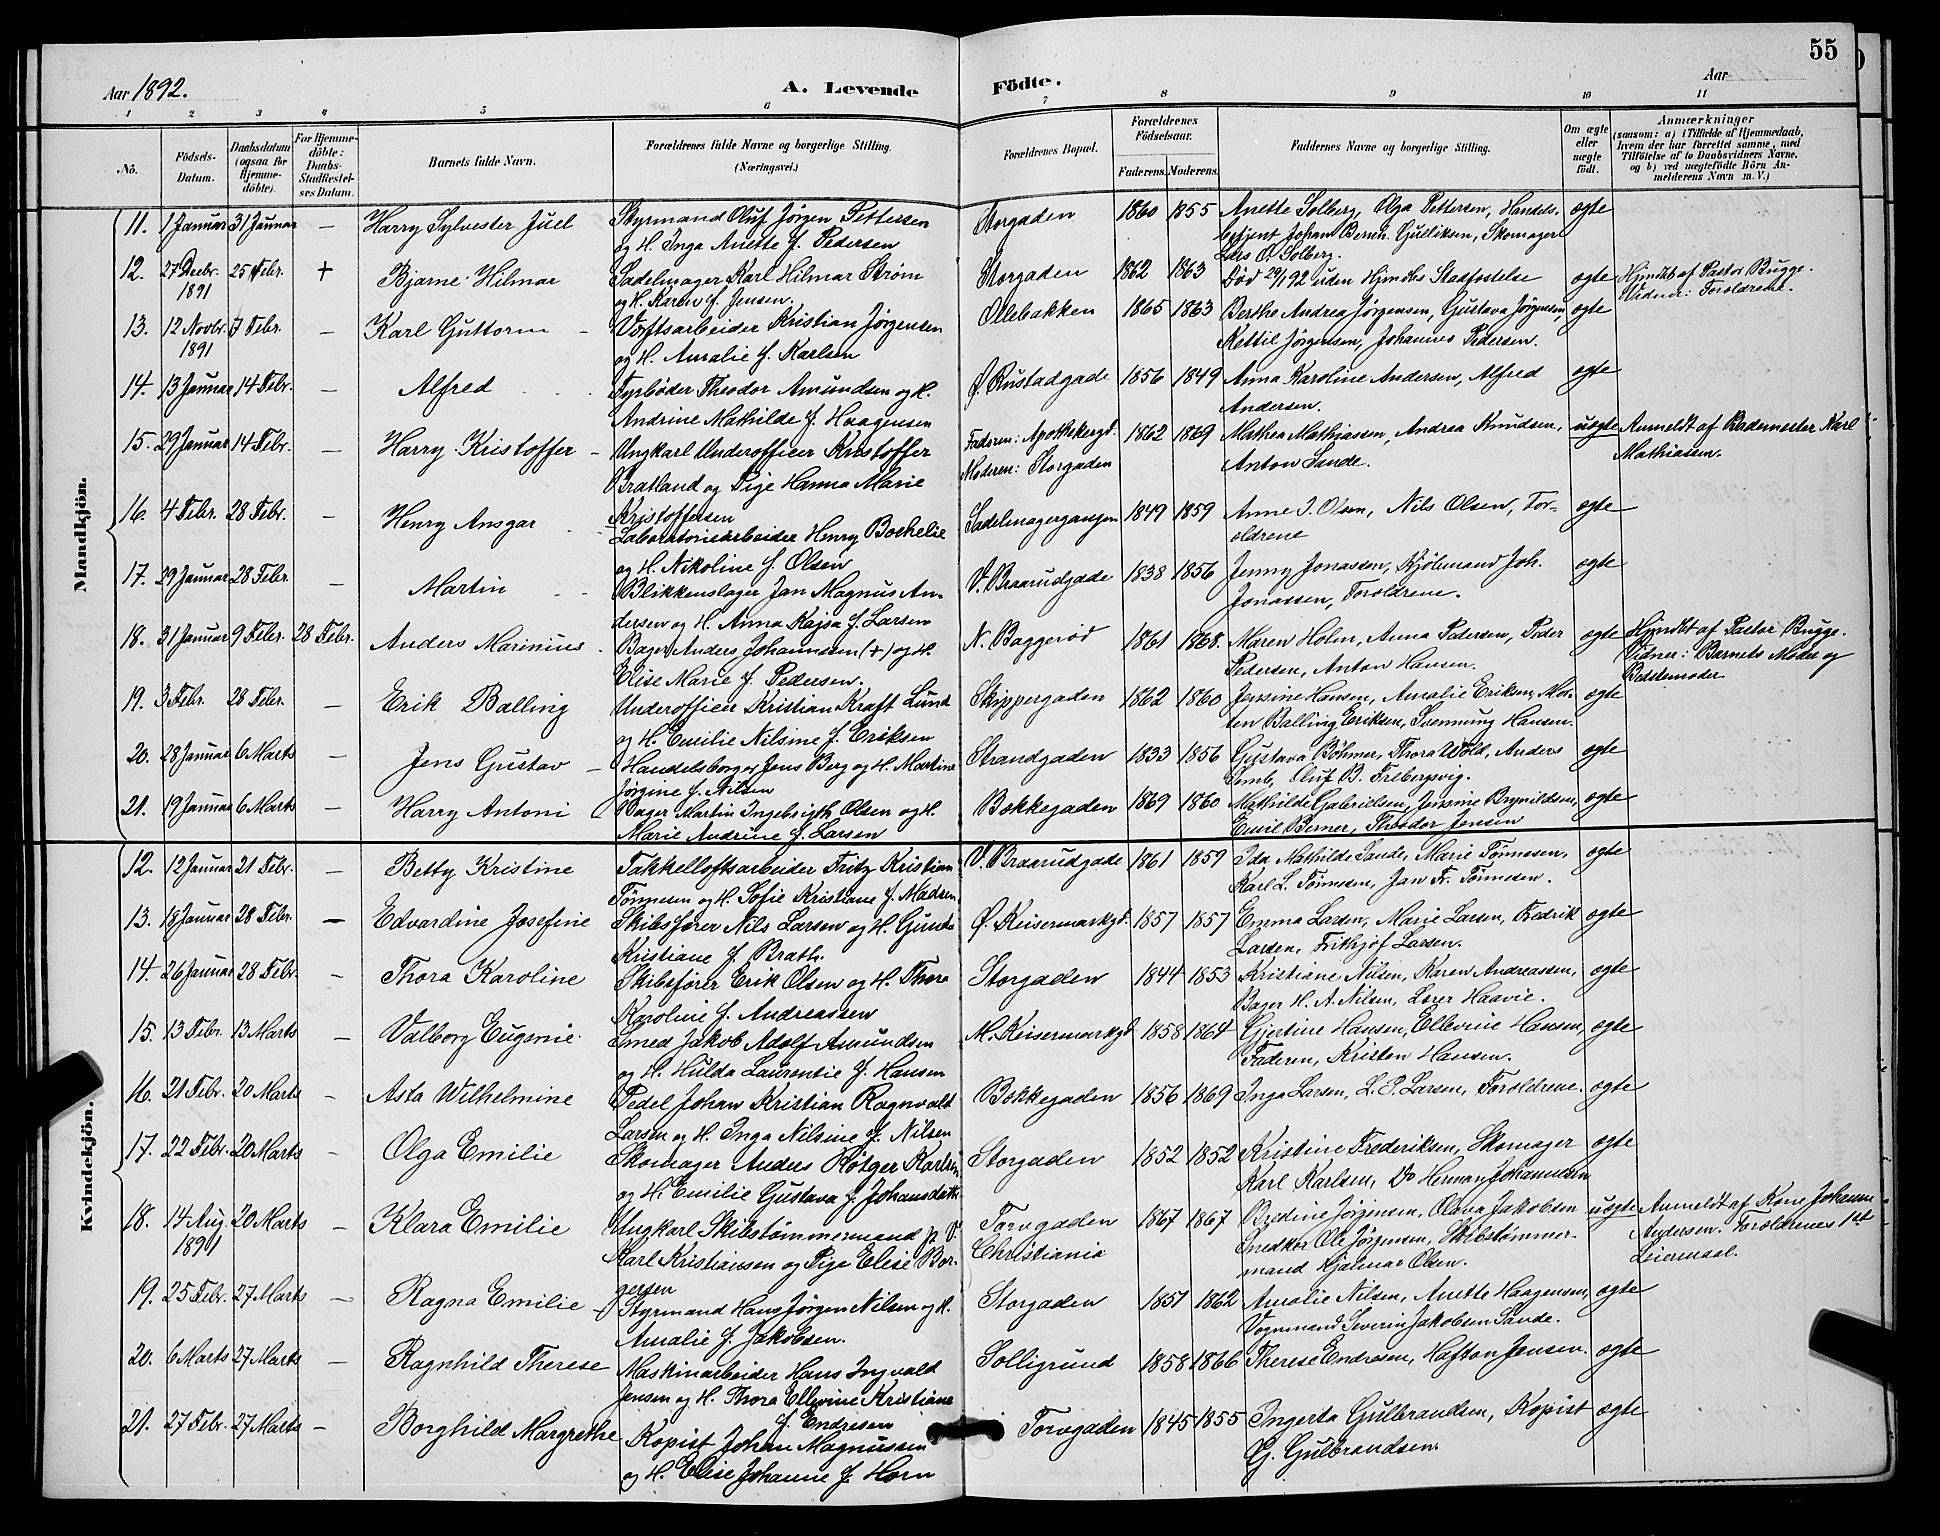 55
Aar 1892.
A. Levende
Födte.
Aar
1 2 3 4 5 6 7 8 9 10 11
No.
Födsels-
Datum.
Daabsdatum
(ogsaa for
Hjemme-
döbte).
For Hjemme-
döbte:
Daabs-
Stadfæstel-
ses Datum.
Barnets fulde Navn.
Forældrenes fulde Navne og borgerlige Stilling.
(Næringsvei.)
Forældrenes Bopæl.
Forældrenes
Födselsaar.
Faderens. Moderens.
Faddernes Navne og borgerlige Stilling.
Om ægte
eller
uægte
födt.
Anmærkninger
(saasom: a) i Tilfælde af Hjemmedaab,
hvem der har forrettet samme, med
Tilföielse af to Daabsvidners Navne.
og b) ved uægtefödte Börn An-
melderens Navn m. V.)
Mandkjön.
11. 1 Januar 31 Januar — Harry Sylvester Juel
Styrmand Oluf Jörgen Pettersen
og H. Inga Anette f. Pedersen
Storgaden 1860 1855
Anette Solberg, Olga Pettersen, Handels-
betjent Johan Bernh. Gulliksen, Skomager
Lars O. Solberg.
ægte
12. 27 Decbr. 1891 25 Febr. + Bjarne Hilmar
Sadelmager Karl Hilmar Ström
og H. Karen f. Jensen.
Storgaden 1862 1863
Död 29/1 92 uden Hjmdbs Stadfæstelse
ægte
Hjmdbt af Pastor Bugge.
Vidner: Forældrene.
13. 12 Novbr. 1891 7 Febr. — Karl Guttorm
Værftsarbeider Kristian Jörgensen
og H. Amalie f. Karlsen
Ollebakken 1865 1863
Berthe Andrea Jörgensen, Gustava Jörgensen,
Kettil Jörgensen, Johannes Pedersen.
ægte
14. 13 Januar 14 Febr. — Alfred
Fyrböder Theodor Amundsen og H.
Andrine Mathilde f. Haagensen
Ø. Rustadgade 1856 1849
Anna Karoline Andersen, Alfred
Andersen.
ægte
15. 29 Januar 14 Febr. — Harry Kristoffer
Ungkarl Underofficer Kristoffer
Bratland og Pige Hanna Marie
Kristoffersen
Faderen: Apothekergd.
Moderen: Storgaden
1862 1869
Mathea Mathiassen, Andrea Knudsen,
Anton Sande.
uægte
Anmeldt af Bademester Karl
Mathiassen.
16. 4 Febr. 28 Febr. — Henry Ansgar
Laboratoriearbeider Henry Bockelie
og H. Nikoline f. Olsen
Sadelmagergangen 1849 1859
Anne I. Olsen, Nils Olsen, For-
ældrene
ægte
17. 29 Januar 28 Febr. — Martin
Blikkenslager Jan Magnus An-
dersen og H. Anna Kajsa f. Larsen
V. Braarudgade 1838 1856
Jenny Jonassen, Kjöbmand Joh.
Jonassen, Forældrene.
ægte
18. 31 Januar 9 Febr. 28 Febr. Anders Marinius
Bager Anders Johannessen (+) og H.
Elise Marie f. Pedersen.
N. Baggeröd 1861 1868
Maren Holm, Anna Pedersen, Peder
Pedersen, Anton Hansen.
ægte
Hjmdbt af Pastor Bugge.
Vidner: Barnets Moder og
Bedstemoder
19. 3 Febr. 28 Febr. — Erik Balling
Underofficer Kristian Kraft Lund
og H. Emilie Nilsine f. Eriksen
Skippergaden 1862 1860
Jensine Hansen, Amalie Eriksen, Mor-
ten Balling Eriksen, Svennung Hansen.
ægte
20. 28 Januar 6 Marts — Jens Gustav
Handelsborger Jens Berg og H. Martine
Jörgine f. Nilsen
Strandgaden 1833 1856
Gustava Böhmer, Thora Wold, Anders
Semb, Oluf B. Frebergsvig.
ægte
21. 19 Januar 6 Marts — Harry Antoni
Bager Martin Ingebrigth Olsen og H.
Marie Andrine f. Larsen
Bækkegaden 1869 1860
Mathilde Gabrielsen, Jensine Brynildsen,
Emil Berner, Theodor Jensen
ægte
Kvindekjön.
12. 12 Januar 21 Febr. — Betty Kristine
Takkelloftsarbeider Fritz Kristian
Tönnesen og H. Sofie Kristiane f. Madsen
V. Braarudgade 1861 1859
Ida Mathilde Sande, Marie Tönnesen,
Karl L. Tönnesen, Jan Fr. Tönnesen.
ægte
13. 18 Januar 28 Febr. — Edvardine Josefine
Skibsförer Nils Larsen og H. Gunda
Kristiane f. Brath.
Ø. Keisermarkgd. 1857 1857
Emma Larsen, Marie Larsen, Fredrik
Larsen, Frithjof Larsen.
ægte
14. 26 Januar 28 Febr. — Thora Karoline
Skibsförer Erik Olsen og H. Thora
Karoline f. Andreassen
Storgaden 1844 1853
Kristiane Nilsen, Karen Andreassen,
Bager H. A. Nilsen, Lærer Haavie.
ægte
15. 13 Febr. 13 Marts — Valborg Eugenie
Smed Jakob Adolf Amundsen
og H. Hulda Laurentie f. Hansen
M. Keisermarkgd. 1858 1864
Gjertine Hansen, Ellevine Hansen,
Faderen, Kristen Hansen.
ægte
16. 21 Febr. 20 Marts — Asta Wilhelmine
Pedel Johan Kristian Ragnvalt
Larsen og H. Inga Nilsine f. Nilsen
Bækkegaden 1856 1869
Inga Larsen, L. P. Larsen, Forældrene.
ægte
17. 22 Febr. 20 Marts — Olga Emilie
Skomager Anders Rötger Karlsen
og H. Emilie Gustava f. Johansdatter
Storgaden 1852 1852
Kristine Frederiksen, Skomager
Karl Karlsen, Do Herman Johannesen
ægte
18. 14 Aug. 1891 20 Marts — Klara Emilie
Ungkarl Skibstömmermand p. V.
Karl Kristiansen og Pige Elise Bör-
gersen
Torvgaden
Christiania
1867 1867
Bredine Jörgensen, Olava Jakobsen
Snedker Ole Jörgensen, Skibstömmer-
mand Hjalmar Olsen.
uægte
Anmeldt af Kone Johanne
Andersen. Forældrenes 1ste
Leiermaal.
19. 25 Febr. 27 Marts — Ragna Emilie
Styrmand Hans Jörgen Nilsen og H.
Amalie f. Jakobsen.
Storgaden 1857 1862
Amalie Nilsen, Anette Haagensen,
Vognmand Severin Jakobsen Sande.
ægte
20. 6 Marts 27 Marts — Ragnhild Therese
Maskinarbeider Hans Ingvald
Jensen og H. Thora Ellevine Kristiane
f. Endresen
Solligrund 1858 1866
Therese Endresen, Hafton Jensen.
ægte
21. 27 Febr. 27 Marts — Borghild Margrethe
Kopist Johan Magnussen
og H. Elise Johanne f. Horn
Torvgaden 1845 1855
Ingerta Gulbrandsen, Kopist
G. Gulbrandsen.
ægte